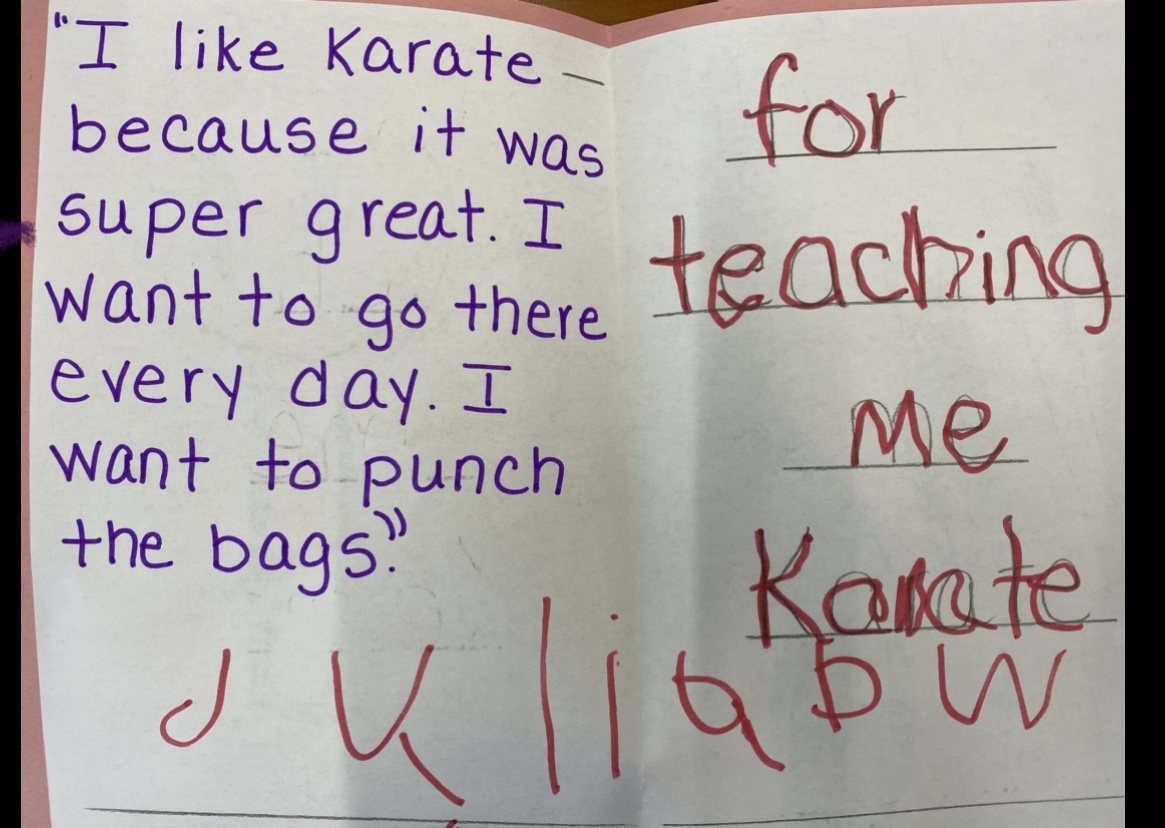 "I like Karate
because it was
super great. I
want to go there
every day. I
want to punch
the bags."
for
teaching
me
Karate